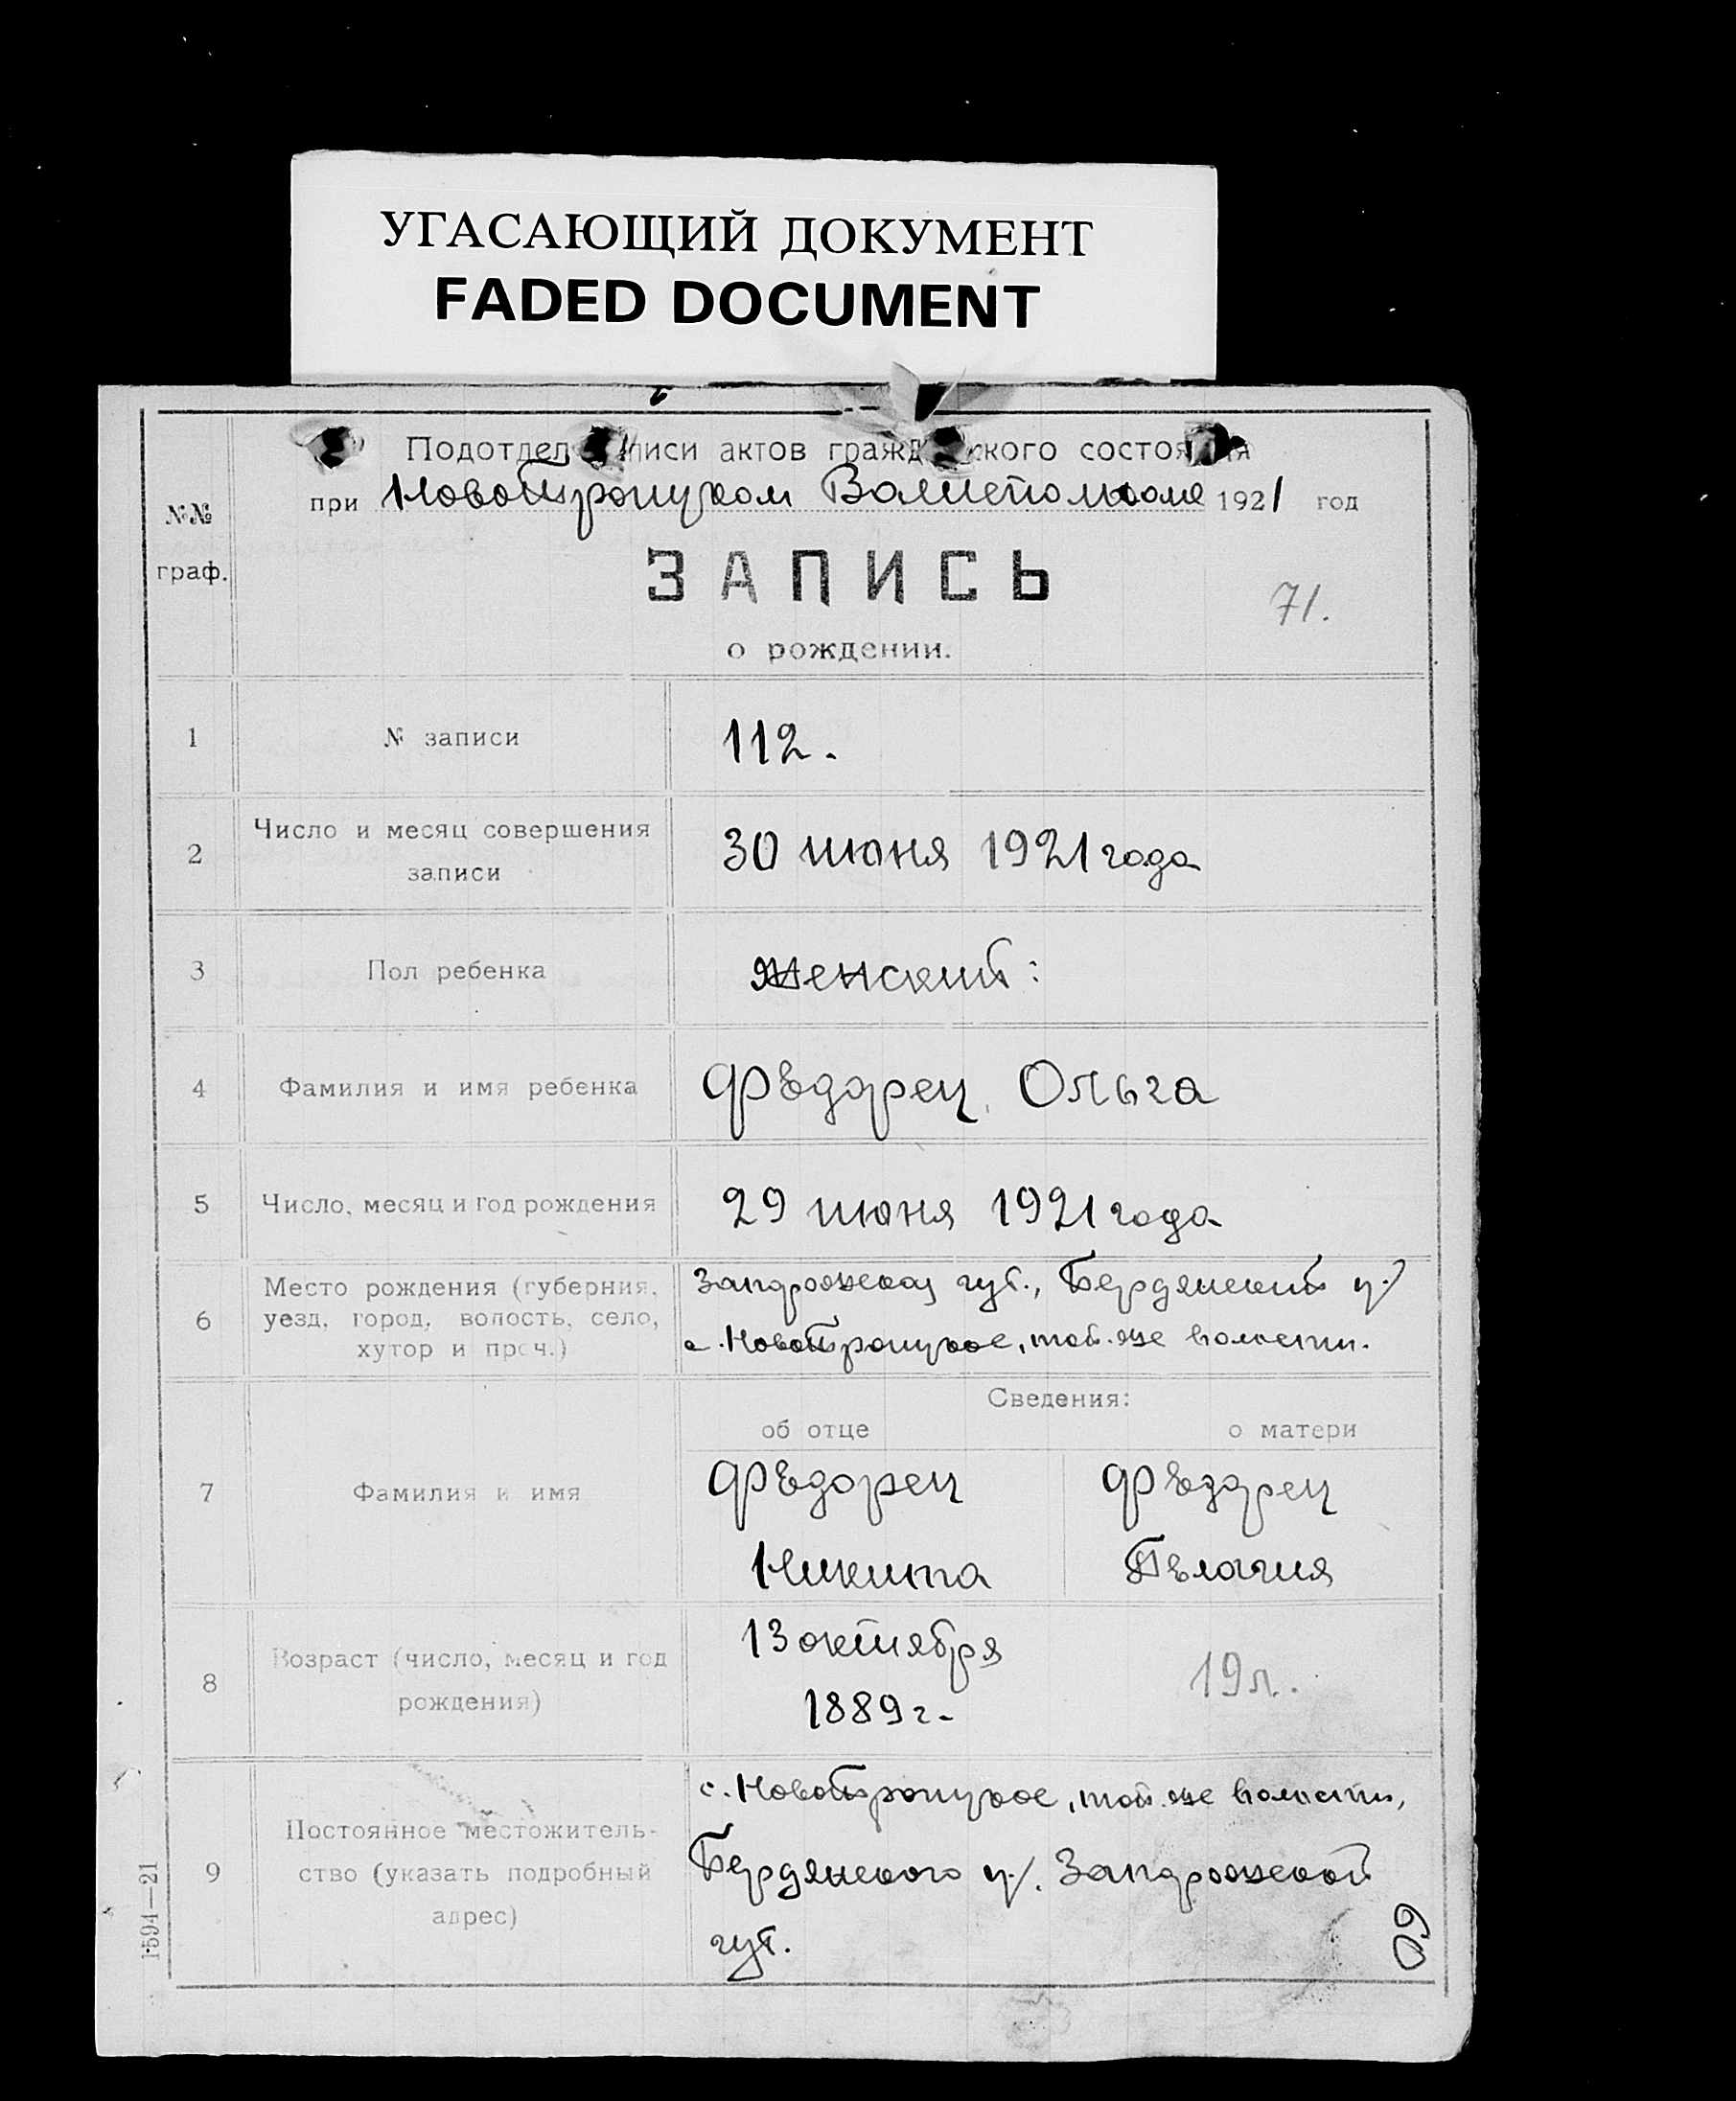 УГАСАЮЩИЙ ДОКУМЕНТ
FADED DOCUMENT
Подотдел записи актов гражданского состояния
при Новотроицком Волисполкоме 1921 год
№№
граф.
ЗАПИСЬ
71.
о рождении.
1 № записи 112.
2 Число и месяц совершения
записи
30 июня 1921 года
3 Пол ребенка женский:
4 Фамилия и имя ребенка Фѣдорец Ольга
5 Число, месяц и год рождения 29 июня 1921 года
6 Место рождения (губерния,
уезд, город, волость, село,
хутор и проч.)
Запорожская губ., Бердянский у/
с. Новотроицкое, той-же волости.
Сведения:
об отце о матери
7 Фамилия и имя
Фѣдорец Фѣдорец
Никита Пѣлагия
8 Возраст (число, месяц и год
рождения)
13 октября
1889 г.
19 л.
9 Постоянное местожитель-
ство (указать подробный
адрес)
с. Новотроицкое, той-же волости,
Бердянского у/. Запорожской
губ.
60
1594—21